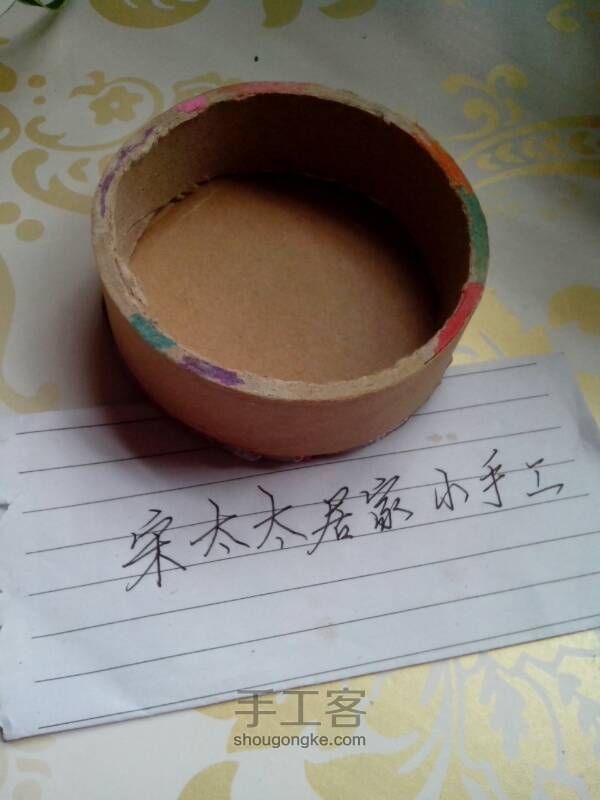 宋太太居家小手工
手工客
shougongke.com